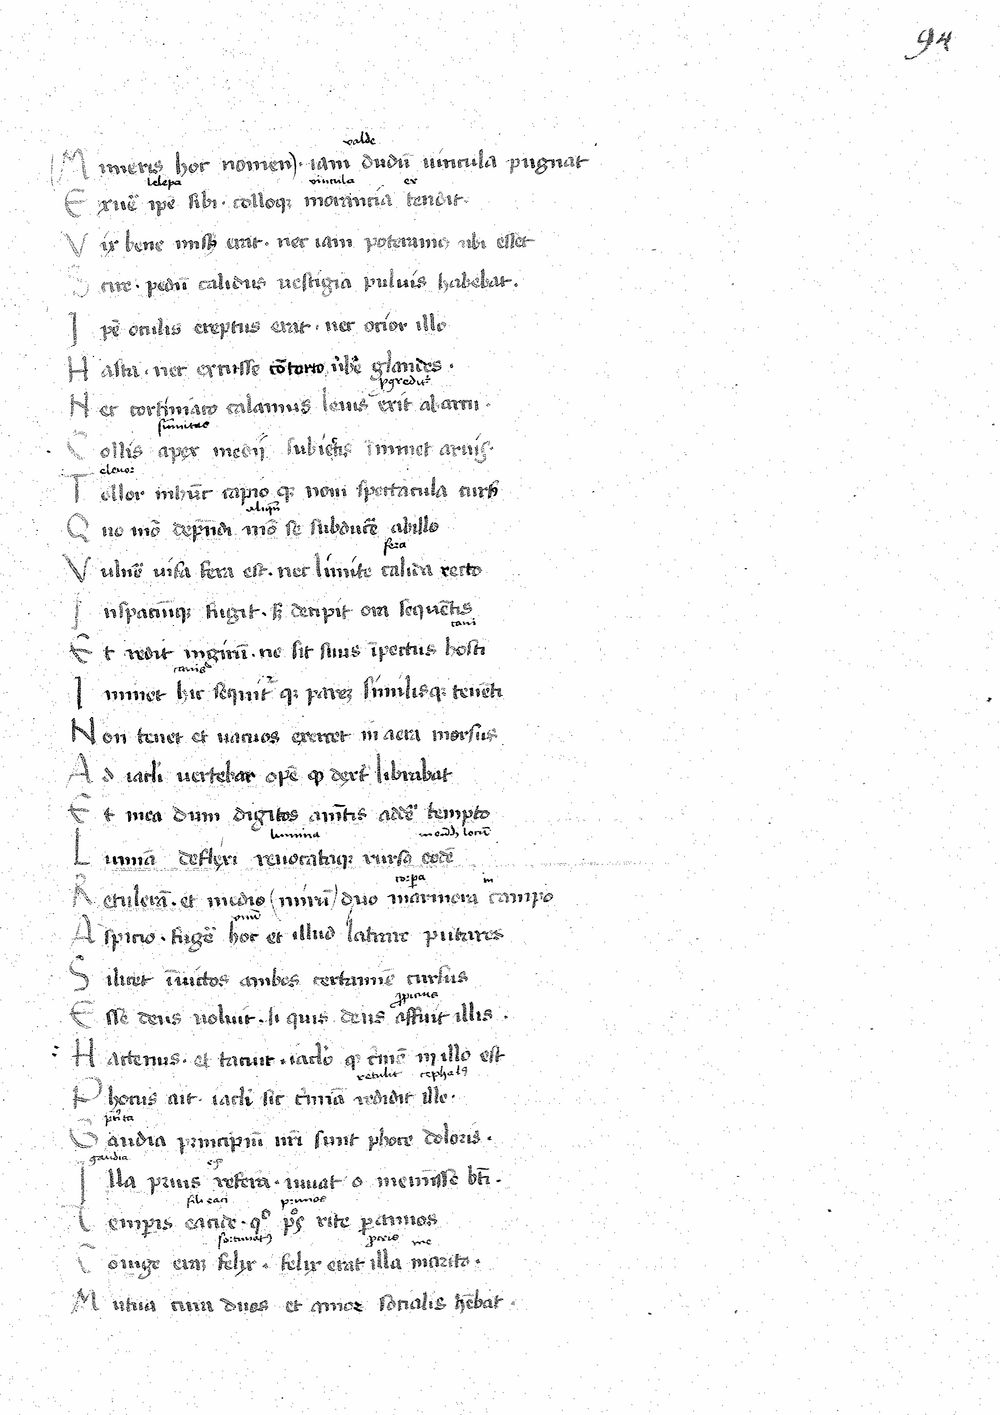 94
valde
(M uneris hoc nomen). iam dudū uincula pugnat
lelepa vincula ex
E xuẽ ipẽ sibi. colloqꝫ morantia tendit.
V ix bene missꝰ erat. nec iam poteramꝰ ubi esset
S cire. pedū calidus uestigia puluis habebat.
I pẽ oculis ereptus erat. nec ocior illo
H asta. nec excusse cōtorto ūbẽ glandes.
pgredit᷑
N ec cortiniaco calamus leuis exit ab arcu.
sūmitas
C ollis apex medij subiectis īminet aruis.
eleuor
T ollor inhūc capio qꝫ noui spectacula cursꝰ
aliqñ
Q uo mō dep̄ndi mō se subducẽ abillo
fera
V ulnẽ uisa fera est. nec limite calida recto
I nspaciūqꝫ fugit. sꝫ decipit ora sequētis
cani
E t redit ingirū. ne sit suus īpectus hosti
canis
I minet hic sequit᷑ qꝫ parez similisqꝫ tenēti
N on tenet et uacuos exercet in aera morsus
A d iacli uertebar opẽ qͣ dext̃ librabat
E t mea dum digitos am̄tis addẽ tempto
lumina eūdē locū
L umīa deflexi reuocataqꝫ rursꝰ eodē
corpa in
R etulerā. et medio (mirū) duo marmora campo
vnū
A spicio. fugẽ hoc et illud latrare putares
S ilicet īuictos ambos certamīe cursus
ꝓpicius
E sse deus uoluit. si quis deus affuit illis.
H actenus. et tacuit. iaclo qꝫ c̃mē in illo est
retulit cephalꝰ
P hocus ait. iacli sic c̃mīa reddidit ille.
p̃rita
G audia principiū nr̄i sunt phoce doloris.
gaudia ego
I lla prius referā. iuuat o meminisse bt̄i.
fili eaci primos
T emp̄is eacide. qͦ pͦs rite p annos
fortunatꝰ me
C oniuge eram felix. felix erat illa marito.
M utua cura duos et amor socialis hēbat.